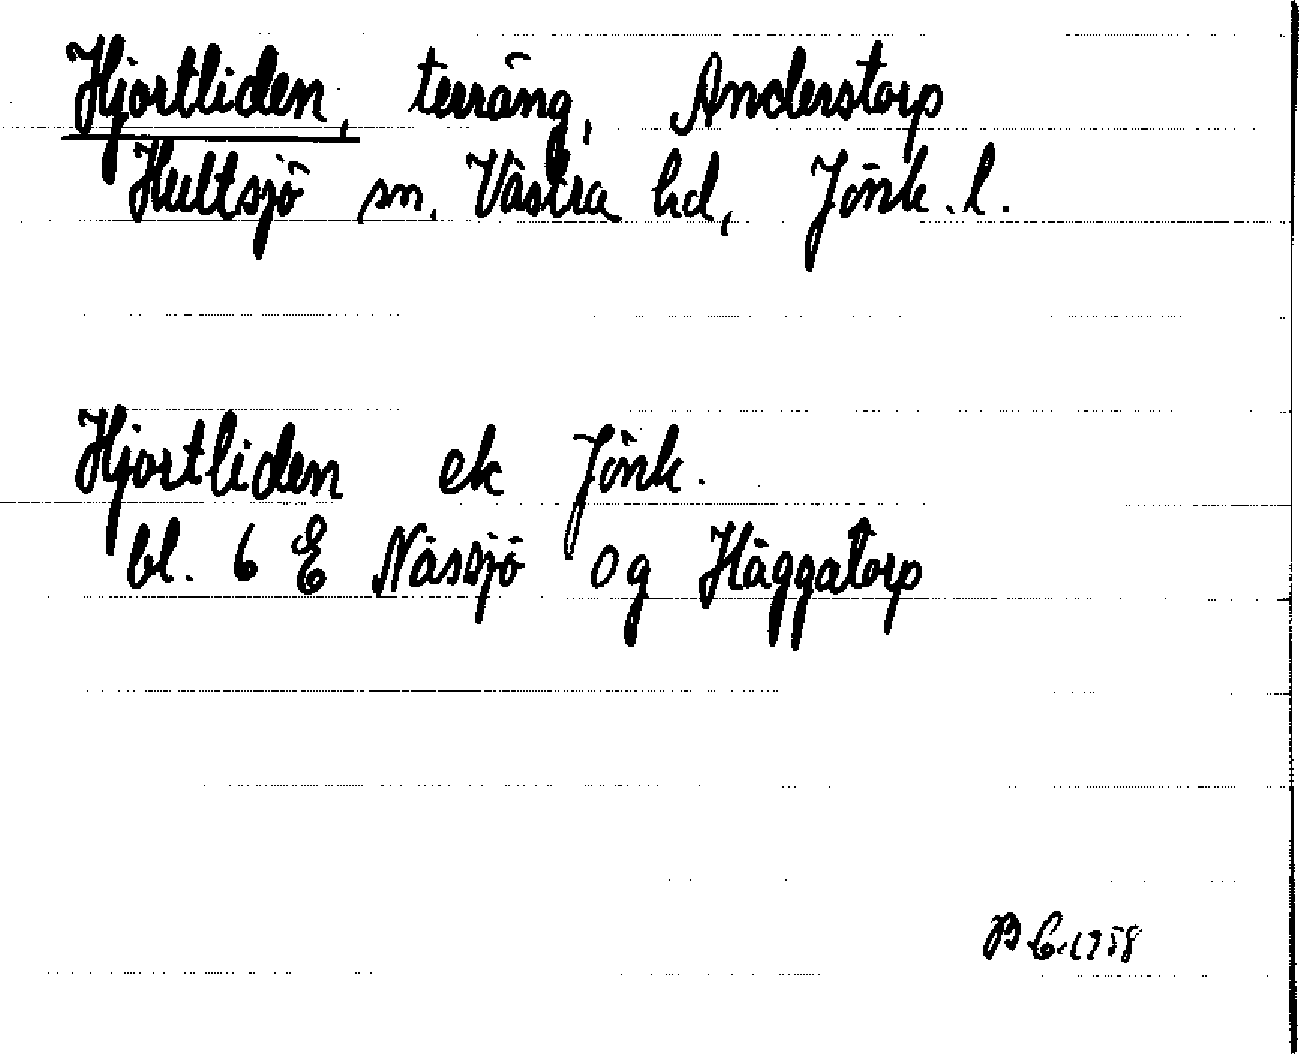 Hjortliden, terräng, Anderstorp
Hultsjö sn. Västra hd, Jönk. l.
Hjortliden ek Jönk.
bl. 6 E Nässjö og Häggatorp
B C. 1958